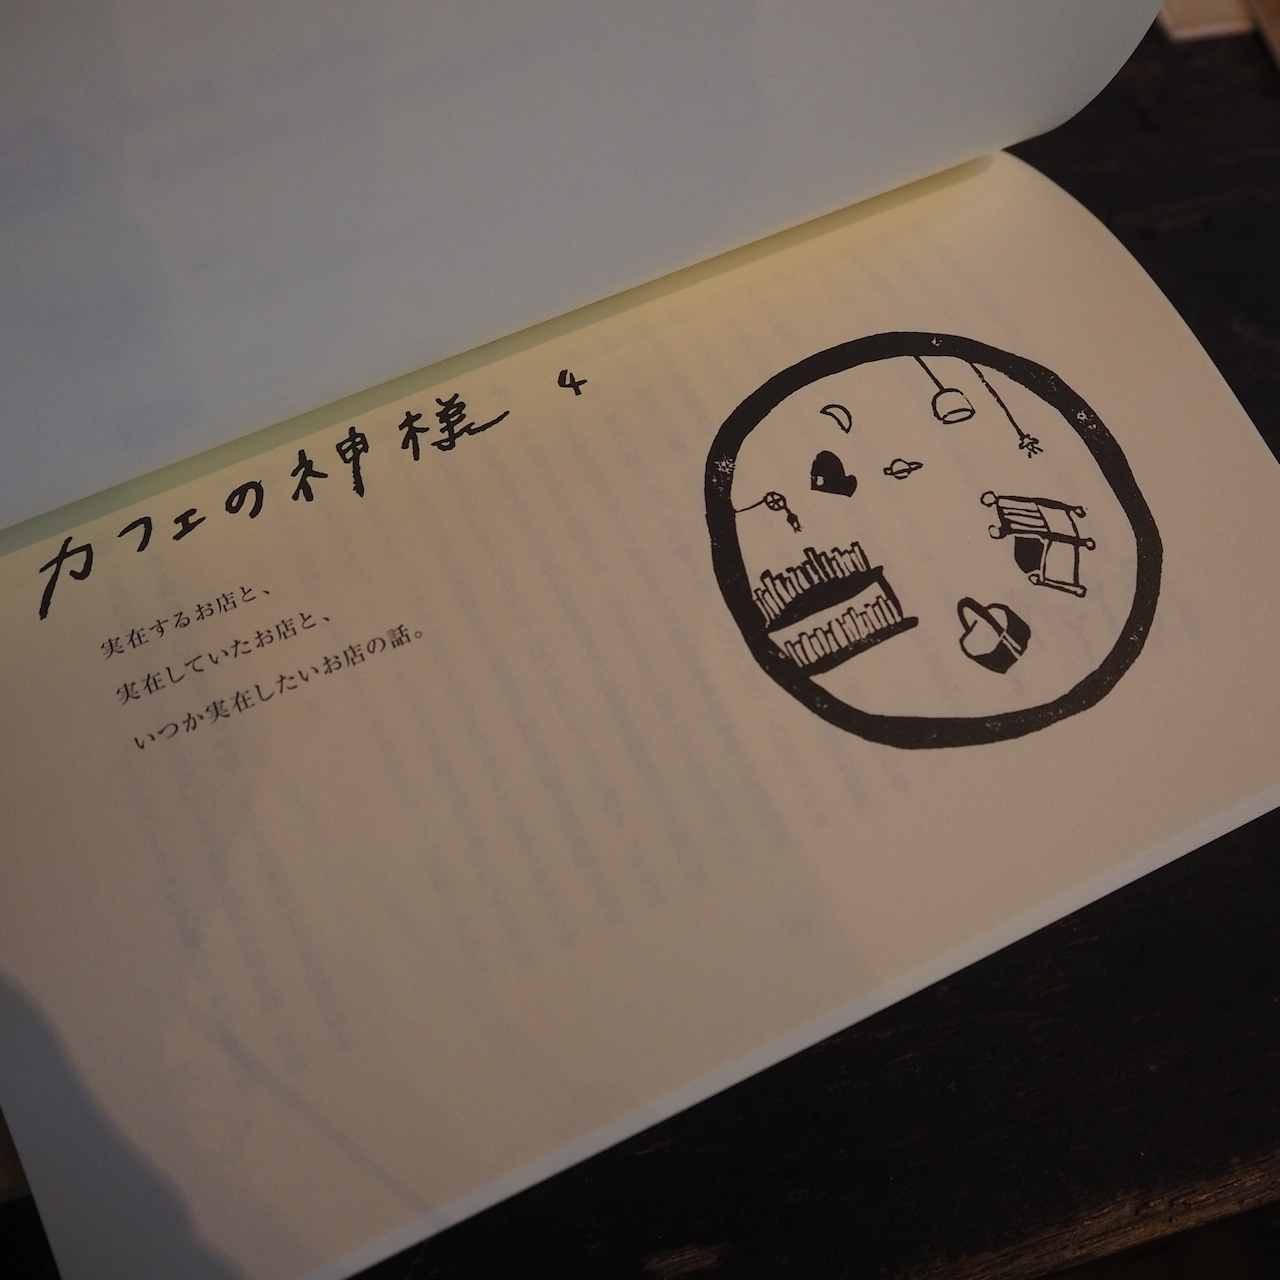 カフェの神様 4
実在するお店と、
実在していたお店と、
いつか実在したいお店の話。